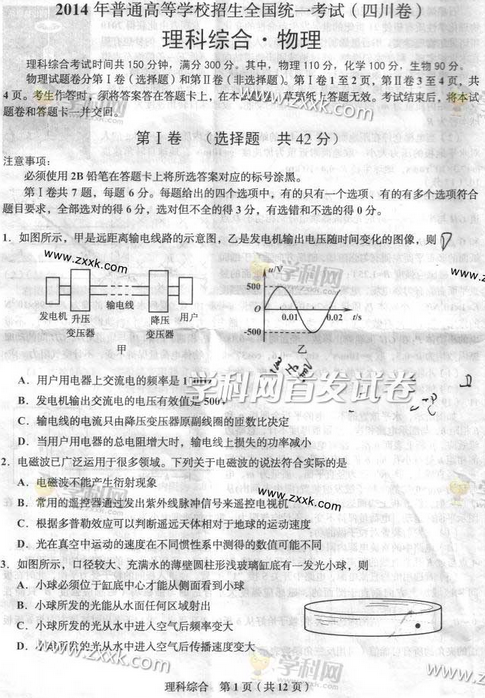 2014 年普通高等学校招生全国统一考试（四川卷）
理科综合·物理
理科综合考试时间共 150 分钟，满分 300 分。其中，物理 110 分，化学 100 分，生物 90 分。
物理试题卷分第Ⅰ卷（选择题）和第Ⅱ卷（非选择题）。第Ⅰ卷 1 至 2 页，第Ⅱ卷 3 至 4 页，共
4 页。考生作答时，须将答案答在答题卡上，在本试题卷、草稿纸上答题无效。考试结束后，将本试
题卷和答题卡一并交回。
www.zxxk.com
第Ⅰ卷 （选择题 共 42 分）
注意事项：
必须使用 2B 铅笔在答题卡上将所选答案对应的标号涂黑。
第Ⅰ卷共 7 题，每题 6 分。每题给出的四个选项中，有的只有一个选项、有的有多个选项符合
题目要求，全部选对的得 6 分，选对但不全的得 3 分，有选错和不选的得 0 分。
1．如图所示，甲是远距离输电线路的示意图，乙是发电机输出电压随时间变化的图像，则 D
www.zxxk.com
学科网
www.zx
发电机 升压变压器 输电线 降压变压器 用户
甲
u/V
500
0
0.01
0.02
t/s
-500
乙
A．用户用电器上交流电的频率是 1
学科网首发试卷
B．发电机输出交流电的电压有效值是 500
C．输电线的电流只由降压变压器原副线圈的匝数比决定
D．当用户用电器的总电阻增大时，输电线上损失的功率减小
2．电磁波已广泛运用于很多领域。下列关于电磁波的说法符合实际的是
A．电磁波不能产生衍射现象
www.zxxk.com
B．常用的遥控器通过发出紫外线脉冲信号来遥控电视机
C．根据多普勒效应可以判断遥远天体相对于地球的运动速度
D．光在真空中运动的速度在不同惯性系中测得的数值可能不同
3．如图所示，口径较大、充满水的薄壁圆柱形浅玻璃缸底有一发光小球，则
A．小球必须位于缸底中心才能从侧面看到小球
B．小球所发的光能从水面任何区域射出
C．小球所发的光从水中进入空气后频率变大
D．小球所发的光从水中进入空气后传播速度变大
www.zxxk.com
学科网
理科综合 第 1 页（共 12 页）